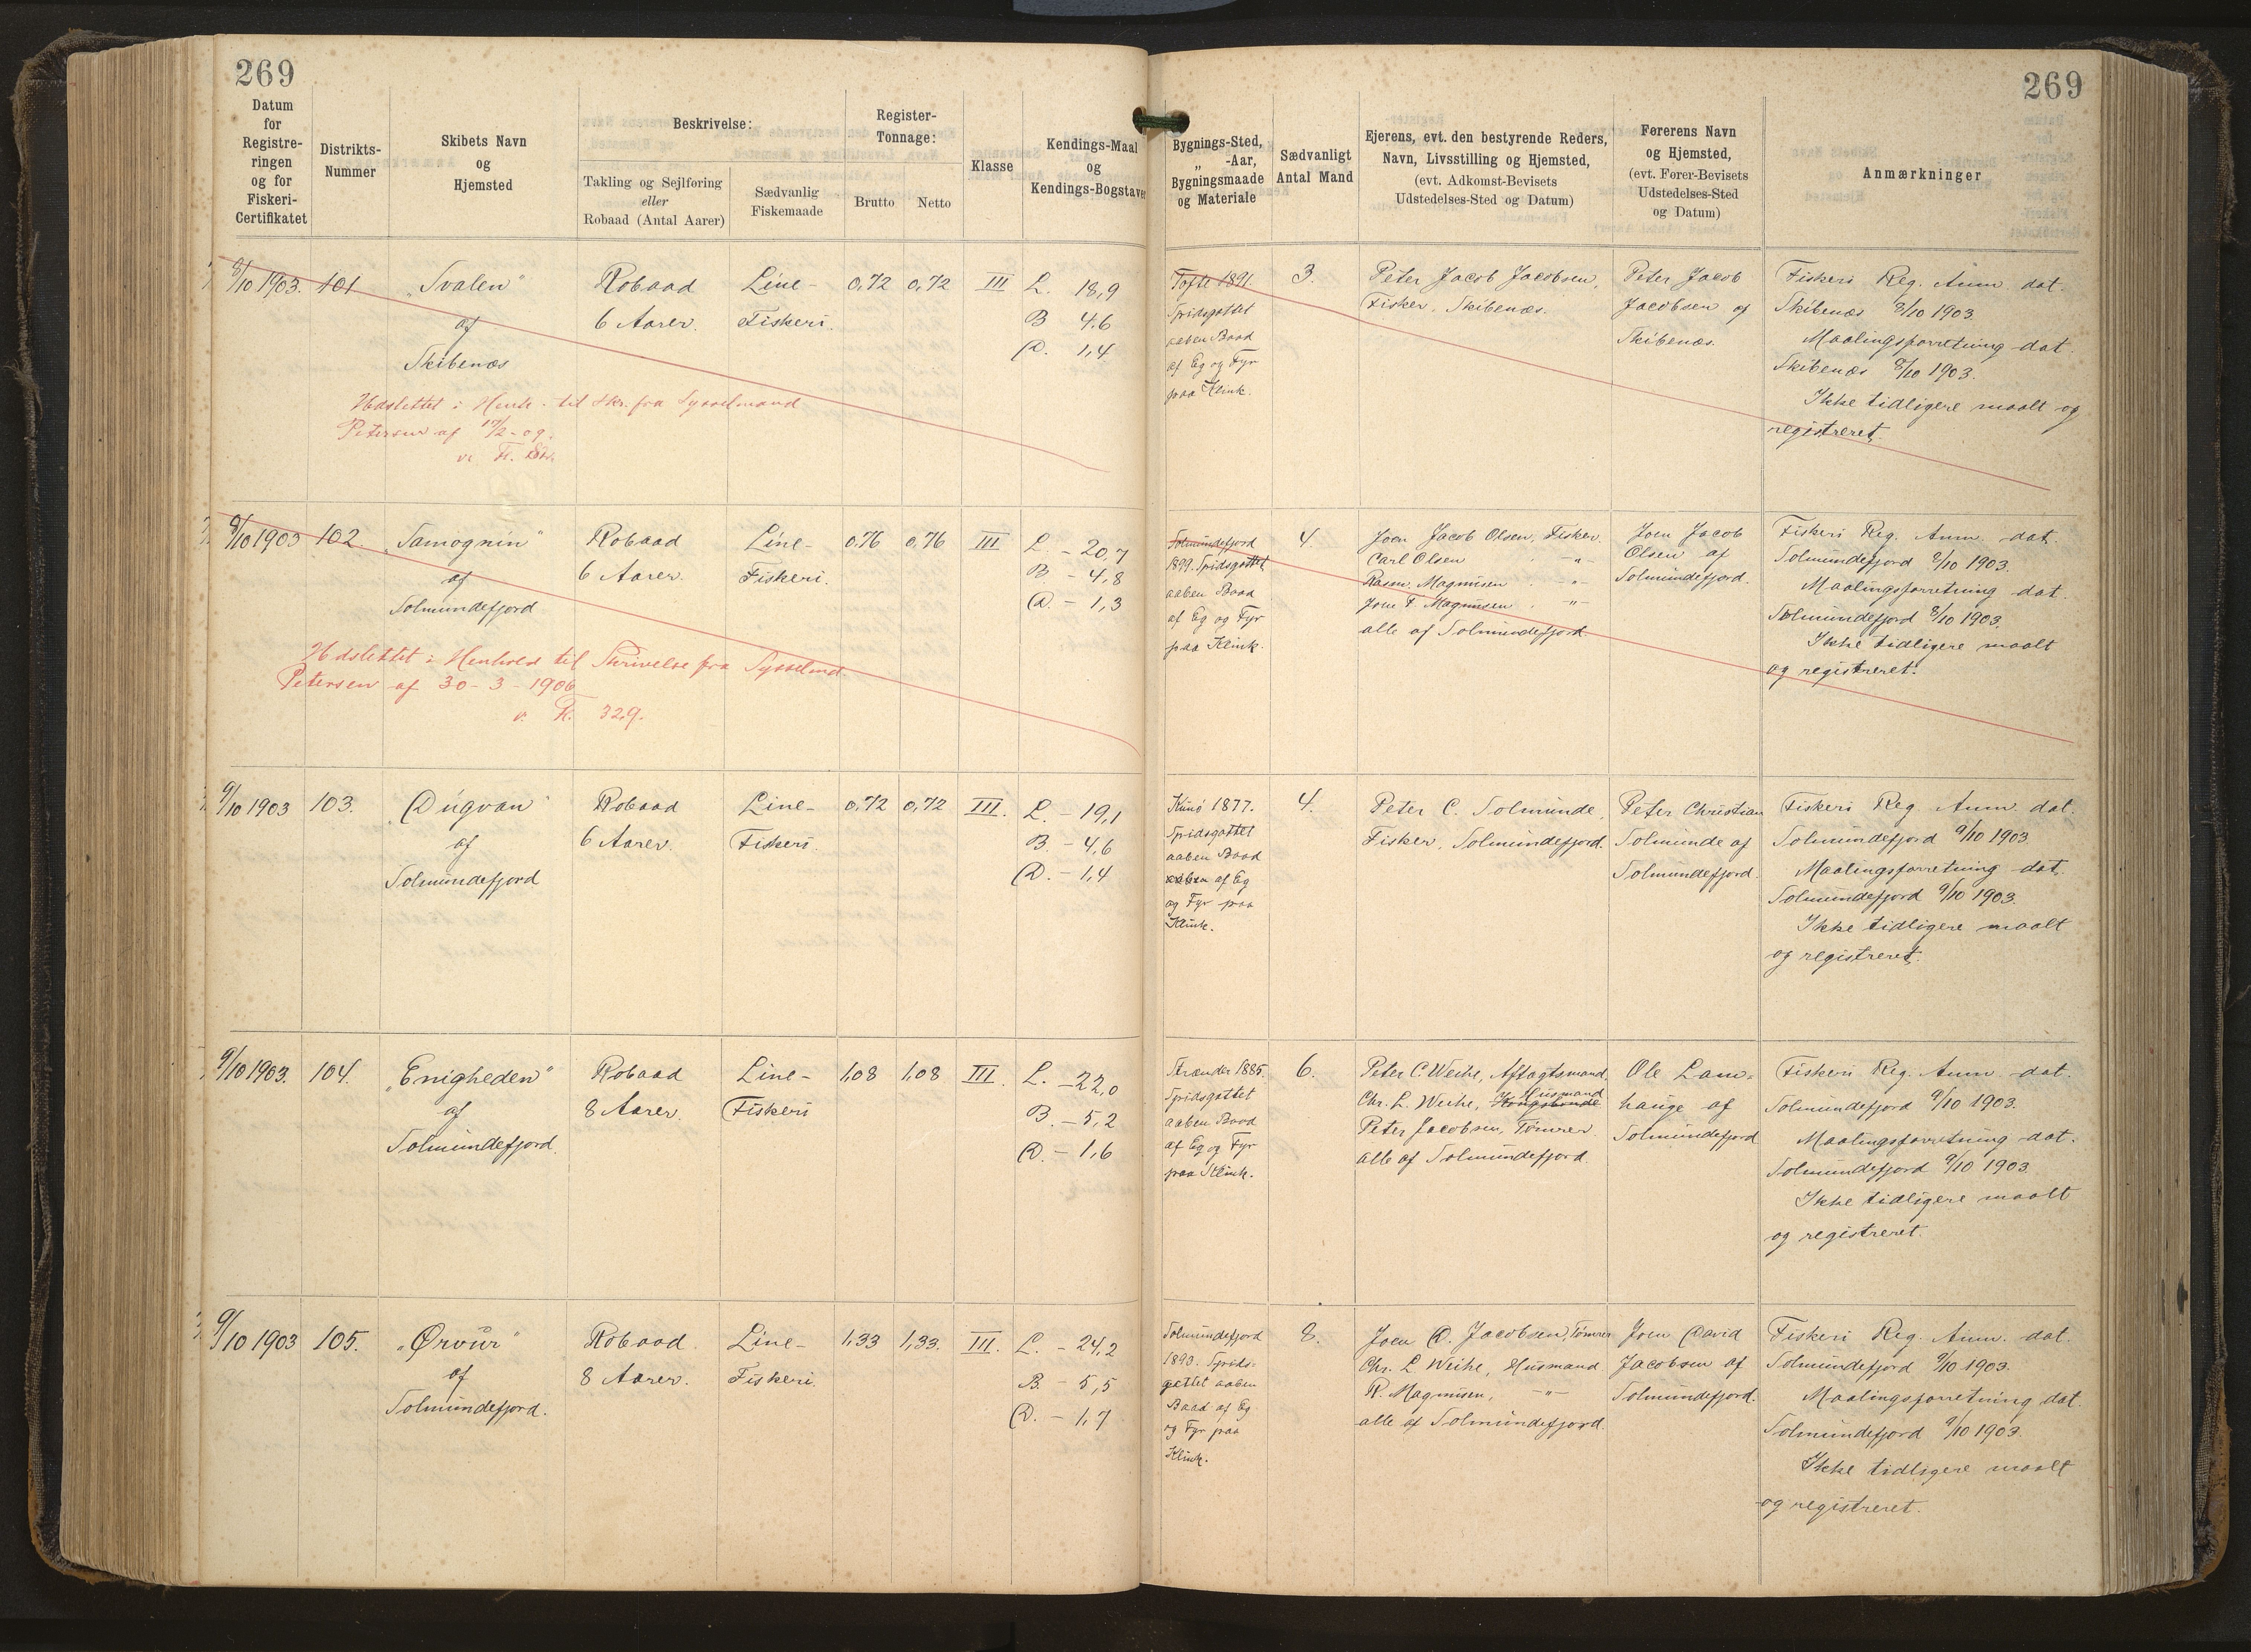 269
269
Datum
for
Registre-
ringen
og for
Fiskeri-
Certifikatet
Distrikts-
Nummer
Skibets Navn
og
Hjemsted
Beskrivelse:
Takling og Sejlføring
eller
Robaad (Antal Aarer)
Sædvanlig
Fiskemaade
Register-
Tonnage:
Brutto
Netto
Klasse
Kendings-Maal
og
Kendings-Bogstaver
Bygnings-Sted,
„ -Aar,
Bygningsmaade
og Materiale
Sædvanligt
Antal Mand
Ejerens, evt. den bestyrende Reders,
Navn, Livsstilling og Hjemsted,
(evt. Adkomst-Bevisets
Udstedelses-Sted og Datum)
Førerens Navn
og Hjemsted,
(evt. Fører-Bevisets
Udstedelses-Sted
og Datum)
Anmærkninger
8/10 1903.
101
„Svalen"
af
Skibenæs
Robaad
6 Aarer.
Line-
Fiskeri.
0,72
0,72
III
L. 18,9
B 4,6
D. 1,4
Tofte 1891.
Spidsgattet
aaben Baad
af Eg og Fyr
paa Klink.
3.
Peter Jacob Jacobsen,
Fisker, Skibenæs.
Peter Jacob
Jacobsen af
Skibenæs.
Fiskeri Reg. Anm. dat.
Skibenæs 8/10 1903.
Maalingsforretning dat.
Skibenæs 8/10 1903.
Ikke tidligere maalt og
registreret.
Udslettet i Henh. til Skr. fra Sysselmand
Petersen af 17/2-09.
8/10 1903
102
„Samognin"
af
Solmundefjord
Robaad
6 Aarer.
Line-
Fiskeri.
0,76
0,76
III
L. - 20,7
B - 4,8
D. - 1,3
Solmundefjord
1899. Spidsgattet
aaben Baad
af Eg og Fyr
paa Klink.
4.
Joen Jacob Olsen, Fisker.
Carl Olsen -"-
Rasm. Magnusen . -"-
Joen F. Magnusen , -"-
alle af Solmundefjord.
Joen Jacob
Olsen af
Solmundefjord.
Fiskeri Reg. Anm. dat.
Solmundefjord 8/10 1903.
Maalingsforretning dat.
Solmundefjord 8/10 1903.
Ikke tidligere maalt
og registreret.
Udslettet i Henhold til Skrivelse fra Sysselmd.
Petersen af 30-3-1906
329.
9/10 1903
103.
„Dugvan"
af
Solmundefjord
Robaad
6 Aarer.
Line-
Fiskeri.
0,72
0,72
III.
L. - 19,1
B. - 4,6
D. - 1,4
Kunø 1877.
Spidsgattet
aaben Baad
aaben af Eg
og Fyr paa
Klink.
4.
Peter C. Solmunde,
Fisker, Solmundefjord.
Peter Christian
Solmunde af
Solmundefjord.
Fiskeri Reg Anm. dat.
Solmundefjord 9/10 1903.
Maalingsforretning dat.
Solmundefjord 9/10 1903.
Ikke tidligere maalt
og registreret.
9/10 1903.
104.
„Enigheden"
af
Solmundefjord.
Robaad
8 Aarer.
Line-
Fiskeri
1,08
1,08
III.
L. - 22,0
B. - 5,2
D. - 1,6
Strænder 1885.
Spidsgattet
aaben Baad
af Eg og Fyr
paa Klink.
6.
Peter C. Weihe, Aftagtsmand,
Husmand
Chr. L. Weihe, Kongsbonde
Peter Jacobsen, Tømrer
alle af Solmundefjord.
Ole Lam-
hauge af
Solmundefjord
Fiskeri Reg. Anm. dat.
Solmundefjord 9/10 1903.
Maalingsforretning dat.
Solmundefjord 9/10 1903.
Ikke tidligere maalt
og registreret.
9/10 1903
105.
„Ørvur"
af
Solmundefjord.
Robaad.
8 Aarer.
Line-
Fiskeri.
1,33
1,33.
III.
L. - 24,2
B. - 5,5
D. - 1,7
Solmundefjord
1893. Spids-
gattet aaben
Baad af Eg
og Fyr paa
Klink.
8.
Joen D. Jacobsen, Tømrer
Chr. L Weihe, Husmand
R. Magnusen, -"-
alle af Solmundefjord.
Joen David
Jacobsen af
Solmundefjord.
Fiskeri Reg. Anm. dat.
Solmundefjord 9/10 1903.
Maalingsforretning dat.
Solmundefjord 9/10 1903.
Ikke tidligere maalt
og registreret.